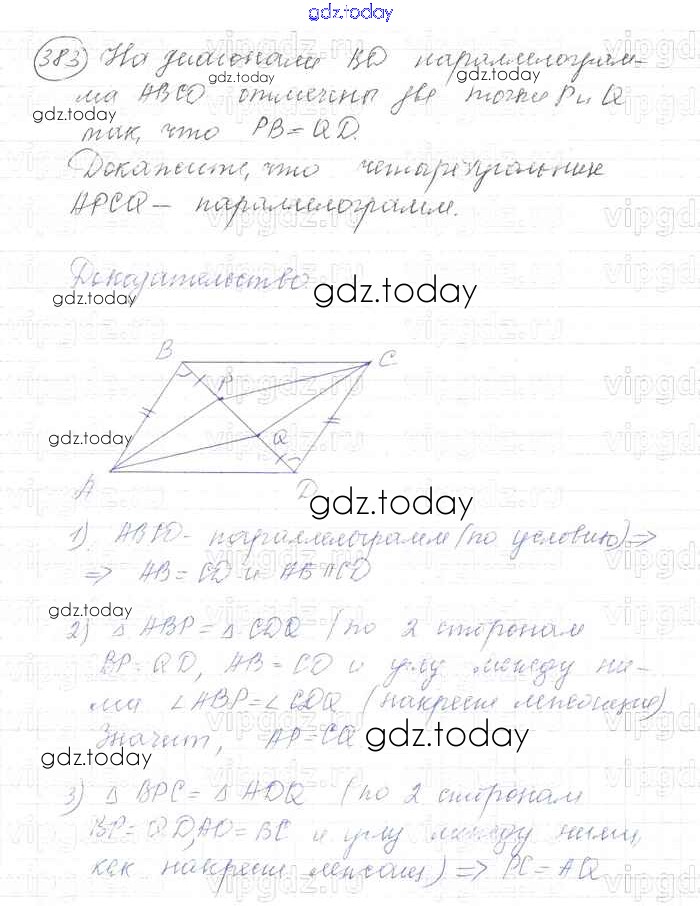 gdz.today
383) На диагонали BD параллелограм-
ма ABCD отмечены две точки P и Q
так, что PB=QD.
Докажите, что четырехугольник
APCQ — параллелограмм.
Доказательство
gdz.today
B C
P
Q
A D
gdz.today
1) ABCD - параллелограмм (по условию) ⇒
⇒ AB = CD и AB II CD
gdz.today
2) △ ABP = △ CDQ (по 2 сторонам
BP = QD, AB = CD и углу между ни-
ми ∠ABP = ∠CDQ (накрест лежащие)
Значит, AP = CQ
gdz.today
3) △ BPC = △ ADQ (по 2 сторонам
BP = QD, AD = BC и углу между ними,
как накрест лежащ) ⇒ PC = AQ